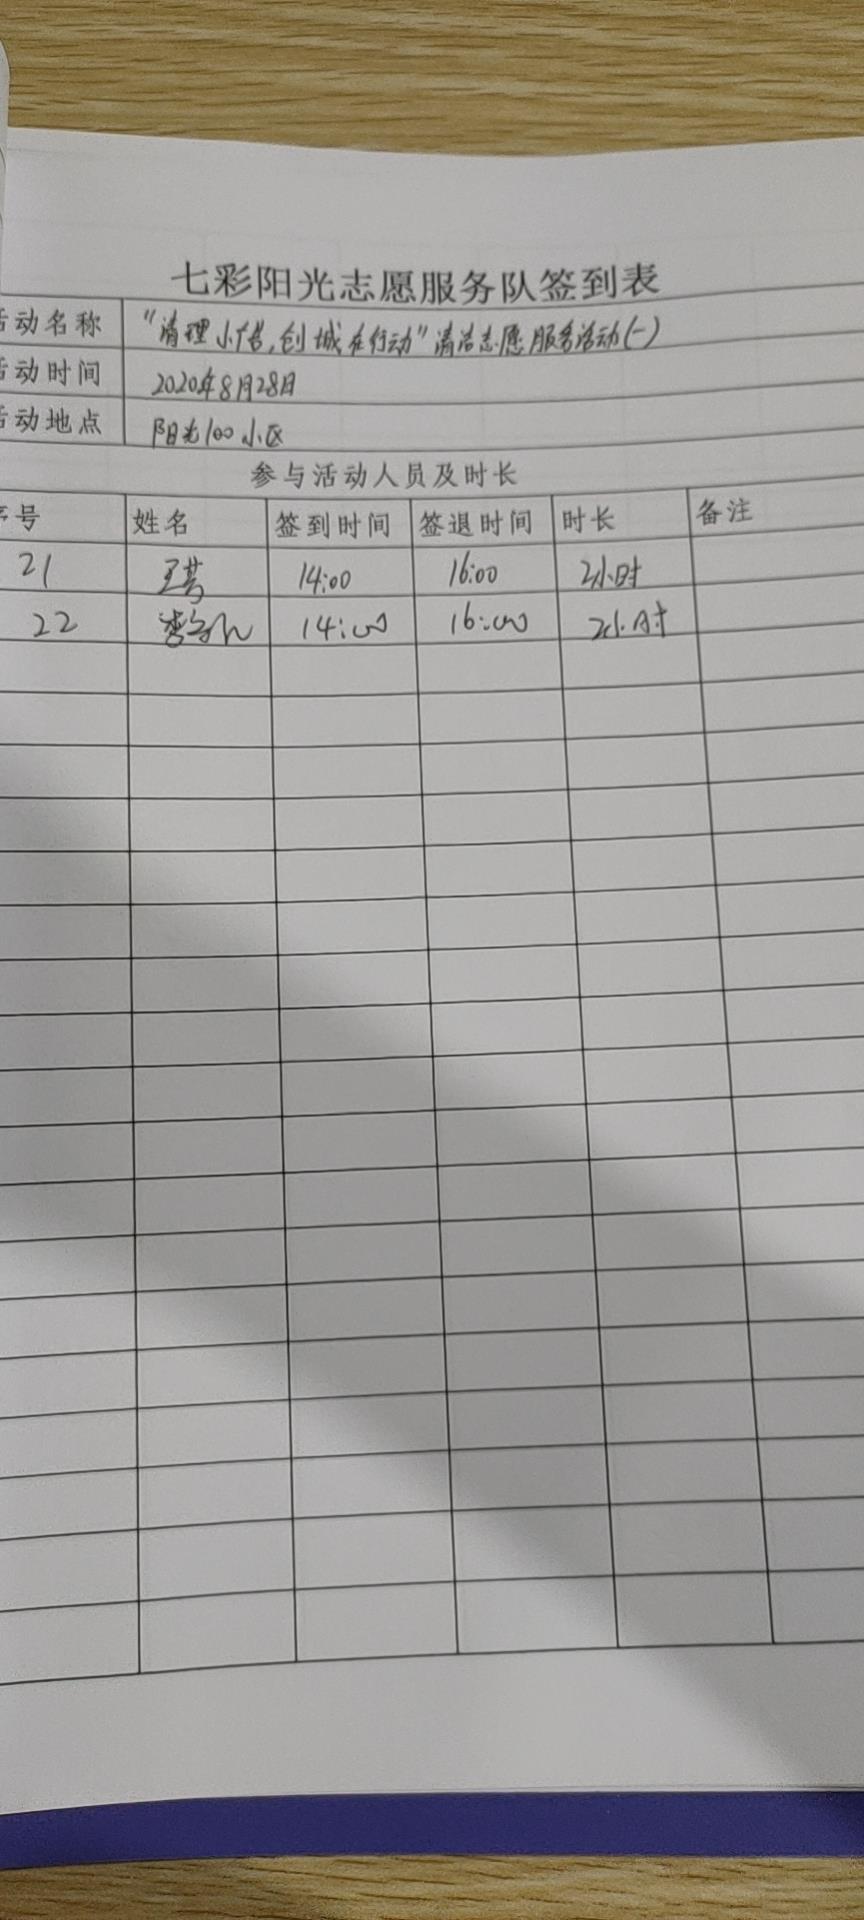 七彩阳光志愿服务队签到表
活动名称 "清理小广告,创城在行动"清洁志愿服务活动(一)
活动时间 2020年8月28日
活动地点 阳光100小区
参与活动人员及时长
序号 姓名 签到时间 签退时间 时长 备注
21 14:00 16:00 2小时
22 14:00 16:00 2小时